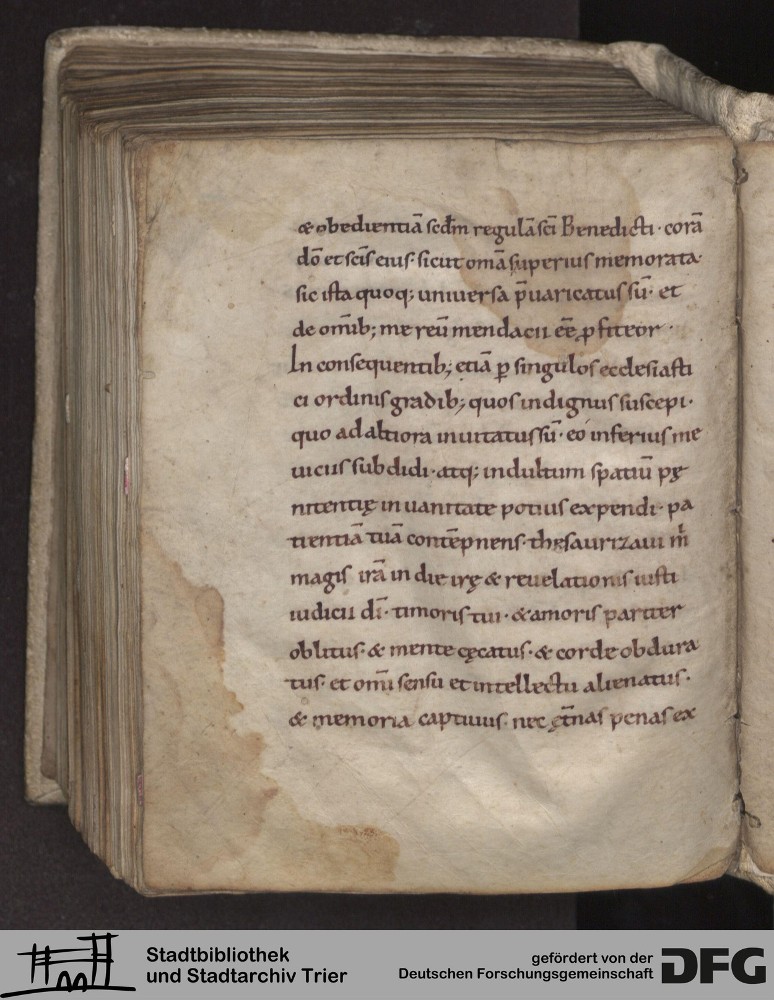 & obedientiā scd̄m regulā sc̄i Benedicti · corā
dō et scīs eius · sicut om̄a superius memorata ·
sic ista quoq; uniuersa p̄uaricatus sū · et
de omīb; me reū mendacii eē ꝓfiteor ·
In consequentib; etiā ꝑ singulos ecclesiasti
ci ordinis gradib; quos indignus suscepi ·
quo ad altiora inuitatus sū · eo inferius me
uiciis subdidi · atq; indultum spatiū pę
nitentię in uanitate potius expendi · pa
tientiā tuā contēpnens · thesaurizaui m̄
magis irā in die irę & reuelationis iusti
iudicii dī · timoris tui · & amoris pariter
oblitus · & mente cęcatus · & corde obdura
tus · et omī sensu et intellectu alienatus ·
& memoria captiuus · nec ęt̄nas penas ex
Stadtbibliothek
und Stadtarchiv Trier
gefördert von der
Deutschen Forschungsgemeinschaft
DFG